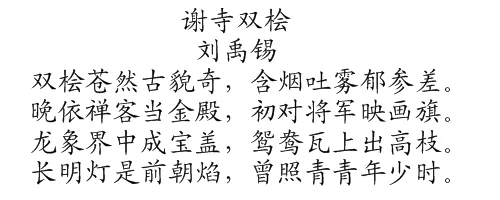 谢寺双桧
刘禹锡
双桧苍然古貌奇，含烟吐雾郁参差。
晚依禅客当金殿，初对将军映画旗。
龙象界中成宝盖，鸳鸯瓦上出高枝。
长明灯是前朝焰，曾照青青年少时。